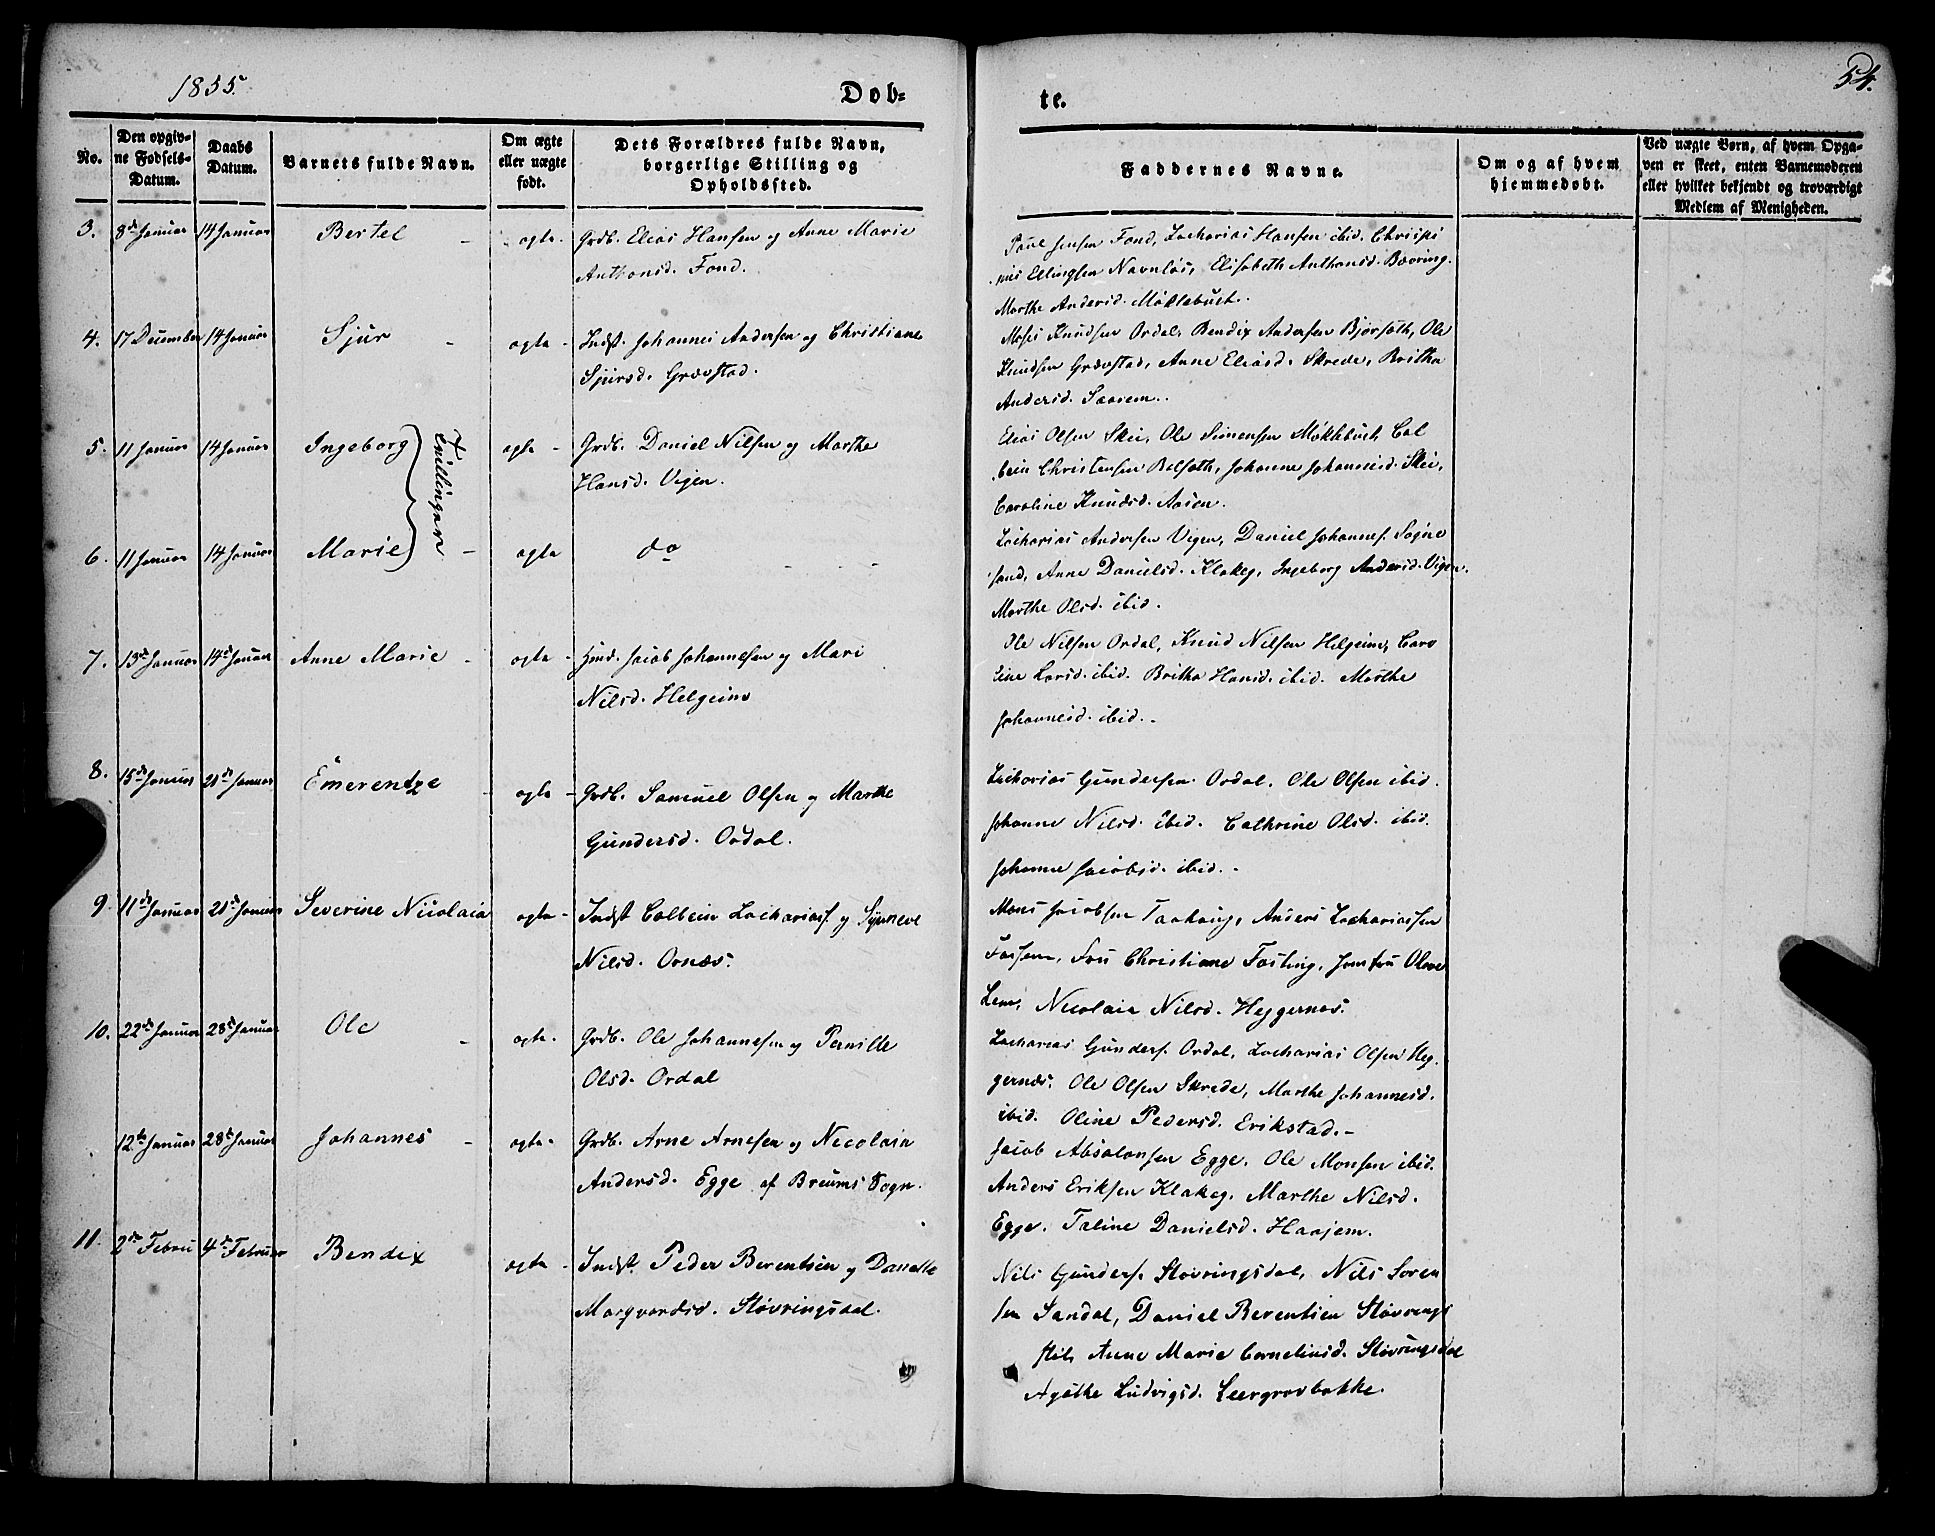 1855.
Døb=
te.
54.
No.
Den opgiv-
ne Fødsels-
Datum.
Daabs
Datum.
Barnets fulde Navn.
Om ægte
eller uægte
født.
Dets Forældres fulde Navn,
borgerlige Stilling og
Opholdssted.
Faddernes Navne.
Om og af hvem
hjemmedøbt.
Ved uægte Børn, af hvem Opga-
ven er skeet, enten Barnemoderen
eller hvilket bekjendt og troværdigt
Medlem af Menigheden.
3. 8de Januar 14 Januar Bertel - ægte - Grdb. Elias Hansen og Anne Marie
Anthonsd. Fond.
Paul Jensen Fond, Zacharias Hansen ibid. Chrispi
nus Ellingsen Navnløs, Elisabeth Anthonsd. Bævring.
Marthe Andersd. Møklebust.
4. 17 December 14 Januar Sjur - ægte - Indst. Johannes Andersen og Christiane
Sjursd. Grævstad.
Moses Knudsen Ordal, Bendix Andersen Bjørsæth, Ole
Knudsen Grævstad, Anne Eliasd. Skrede, Britha
Andersd. Saarem.
5. 11 Januar 14 Januar Ingeborg Tvillinger ægte - Grdb. Daniel Nilsen og Marthe
Hansd. Vigen.
Elias Olsen Skei, Ole Simensen Møklebust, Col
bein Christensen Belsæth, Johanne Johannesd. Skei,
Caroline Knudsd. Aasen.
6. 11 Januar 14 Januar Marie - ægte do
Zacharias Andersen Vigen, Daniel Johannes. Sogne
sand, Anne Danielsd. Klakeg, Ingeborg Andersd. Vigen.
Marthe Olsd. ibid.
7. 13de Januar 14de Januar Anne Marie - ægte - Hmd. Jacob Johannesen og Mari
Nilsd. Helgeim
Ole Nilsen Ordal, Knud Nilsen Helgeim, Caro
line Larsd. ibid. Britha Hansd. ibid. Marthe
Johannesd. ibid.-
8. 15de Januar 21de Januar Emerentze - ægte - Grdb. Samuel Olsen og Marthe
Gundersd. Ordal.
Zacharias Gundersen Ordal. Ole Olsen ibid.
Johanne Nilsd. ibid. Cathrine Olsd. ibid.
Johanne Jacobsd. ibid.-
9. 11de Januar 21de Januar Severine Nicolaia ægte - Indst Colbein Zachariass. og Synneve
Nilsd. Ornæs.
Mons Jacobsen Taakaug, Anders Zachariassen
Fossem, Fru Christiane Fasting, Jomfru Olave
Lem, Nicolaia Nilsd. Heggernæs.
10. 22de Januar 28de Januar Ole - ægte - Grdb. Ole Johannesen og Pernille
Olsd. Ordal
Zacharias Gunders. Ordal, Zacharias Olsen Heg-
gernæs, Ole Olsen Skrede, Marthe Johannesd.
ibid. Oline Pedersd. Erikstad.-
12te Januar 28de Januar Johannes - ægte - Grdb. Arne Arnesen og Nicolaia
Andersd. Egge af Breums Sogn.
Jacob Absalonsen Egge. Ole Monsen ibid.
Anders Eriksen Klakeg. Marthe Nilsd.
Egge. Taline Danielsd. Haajem.
11. 2den Febru 4de Februar Bendix ægte - Indst. Peder Berentsen og Danelle
Marqvardsd. Støvringsdal.
Nils Gunders. Støvringsdal, Nils Søren
sen Sandal, Daniel Berentsen Støvrings
dal, Anne Marie Corneliusd. Støvringsdal
Agathe Ludvigsd. Leergrovbakke.